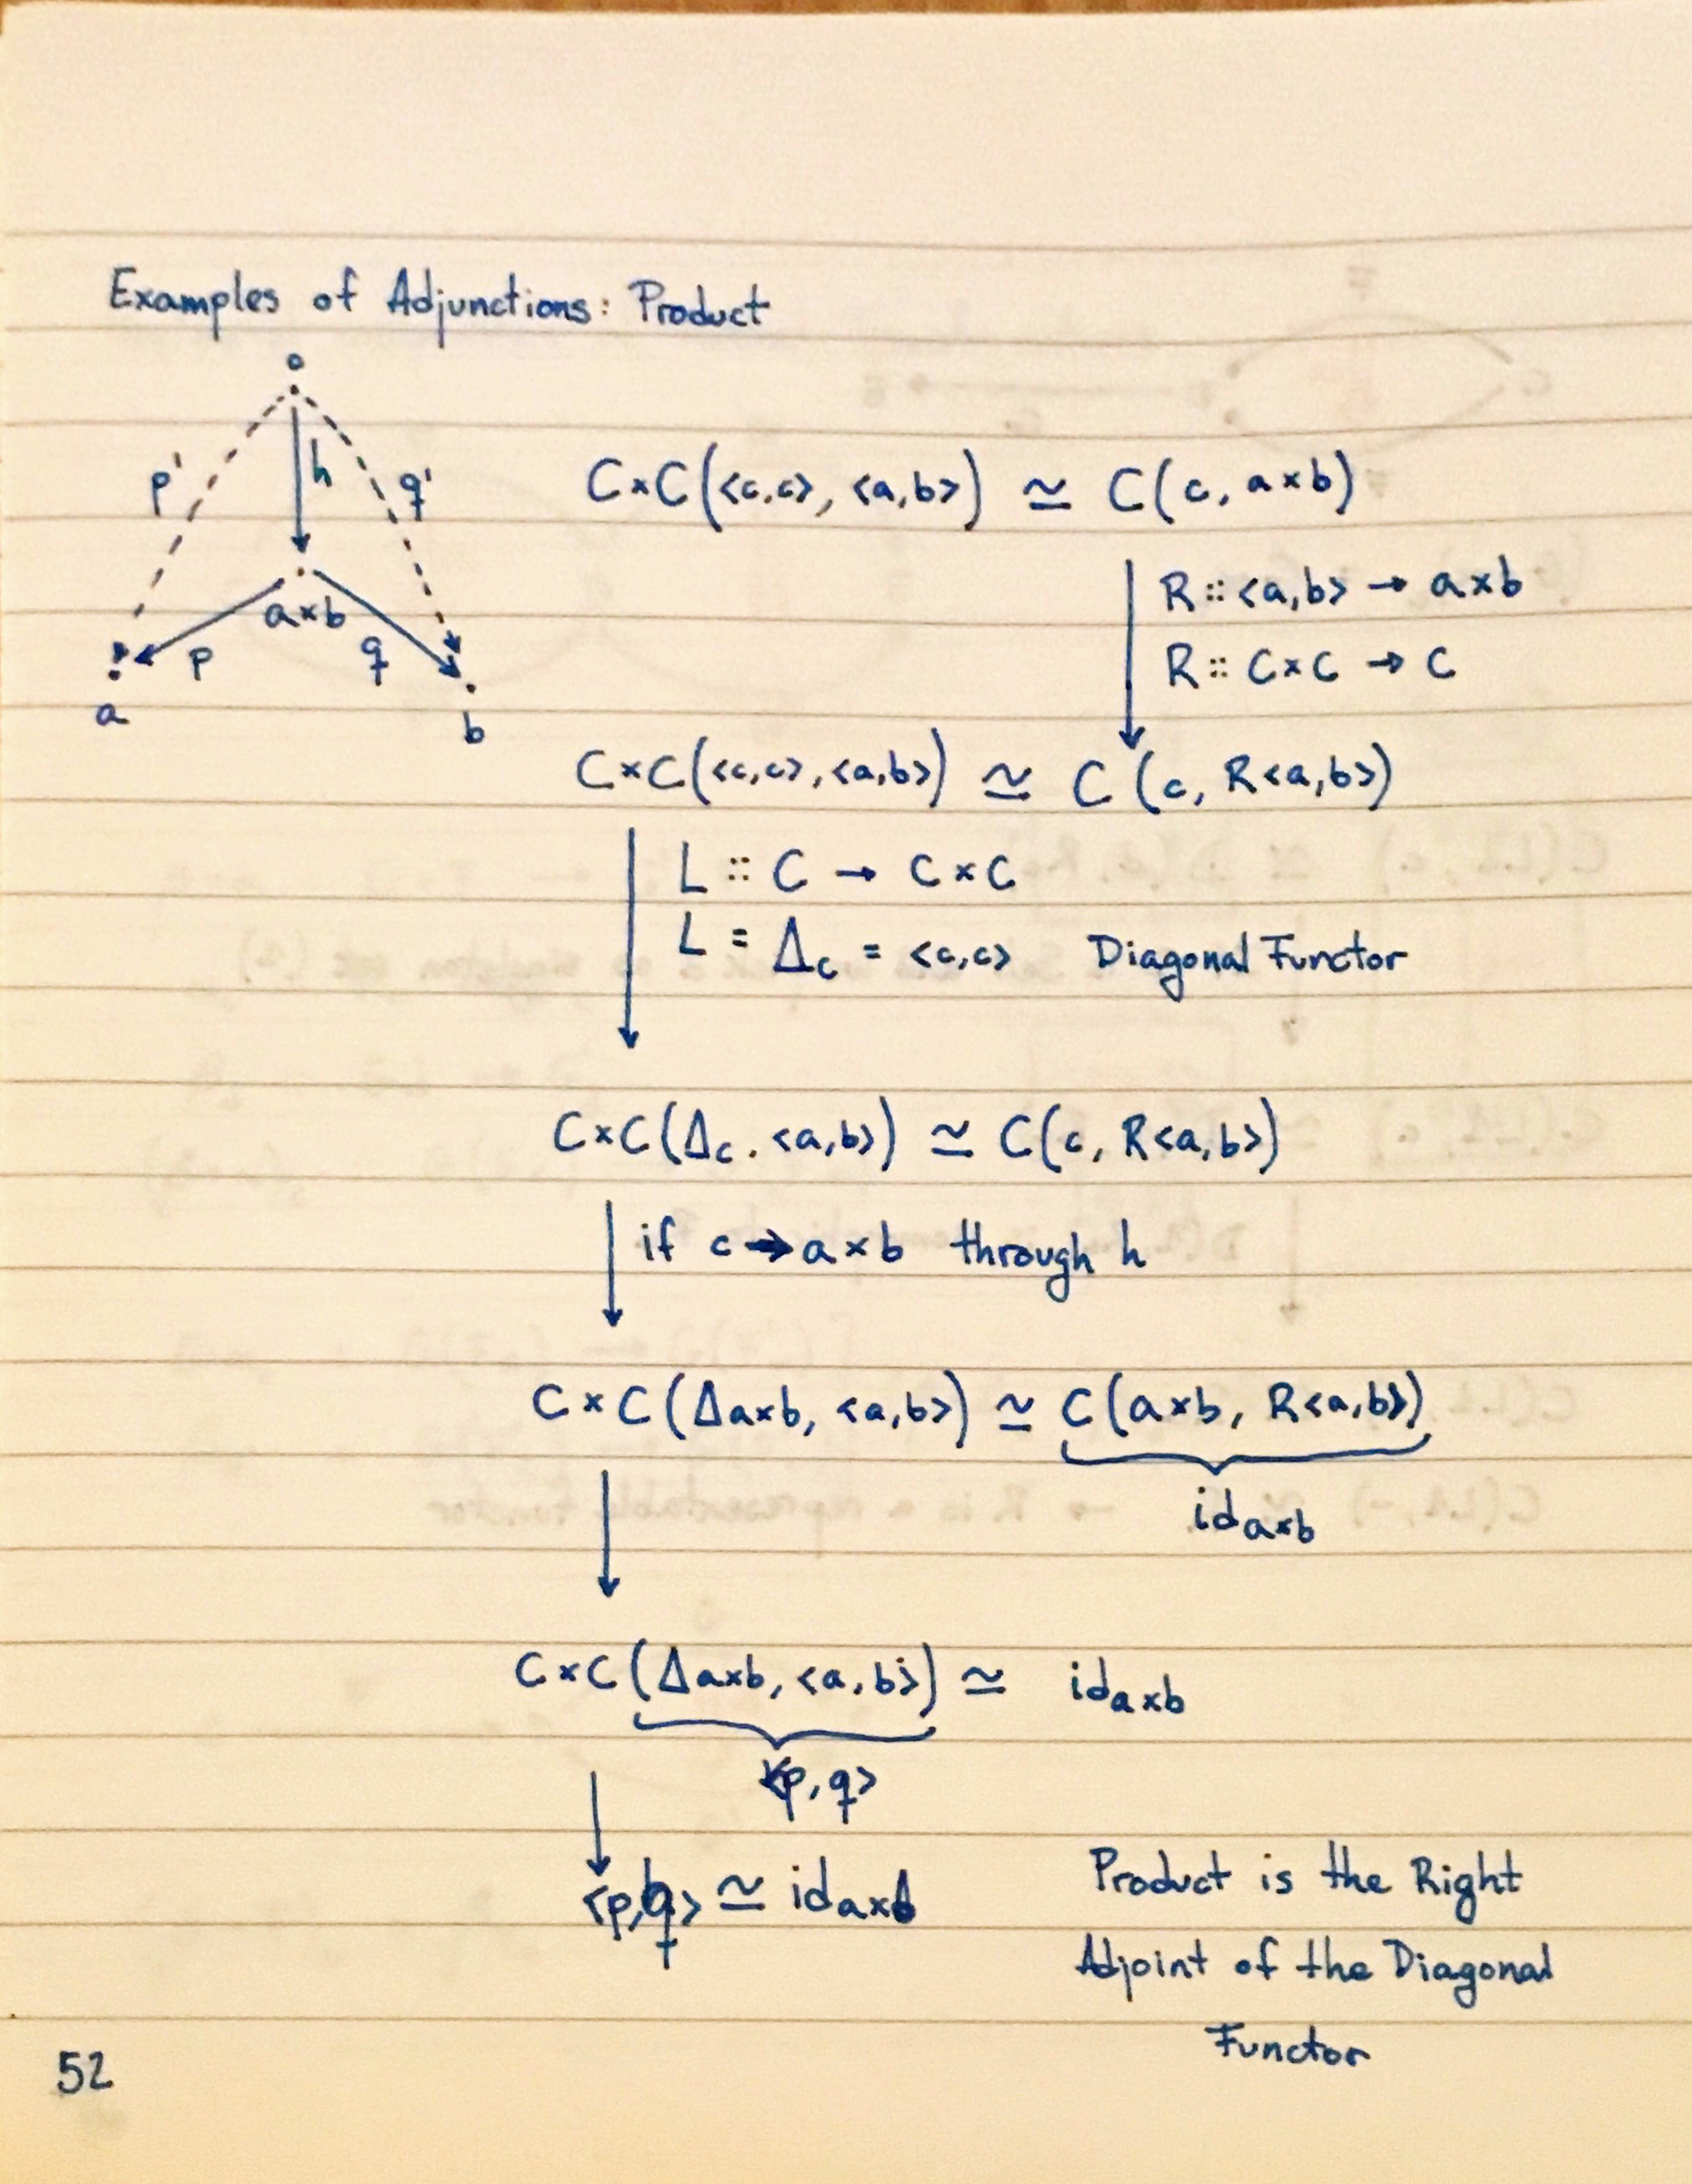 Examples of Adjunctions: Product
c
p' h q'
a×b
p q
a
b
C×C(<c,c>, <a,b>) ≃ C(c, a×b)
R :: <a,b> → a×b
R :: C×C → C
C×C(<c,c>, <a,b>) ≃ C(c, R<a,b>)
L :: C → C×C
L = Δc = <c,c> Diagonal Functor
C×C(Δc, <a,b>) ≃ C(c, R<a,b>)
if c → a×b through h
C×C(Δa×b, <a,b>) ≃ C(a×b, R<a,b>)
id a×b
C×C(Δa×b, <a,b>) ≃ id a×b
<p,q>
<p,q> ≃ id a×b
Product is the Right
Adjoint of the Diagonal
Functor
52